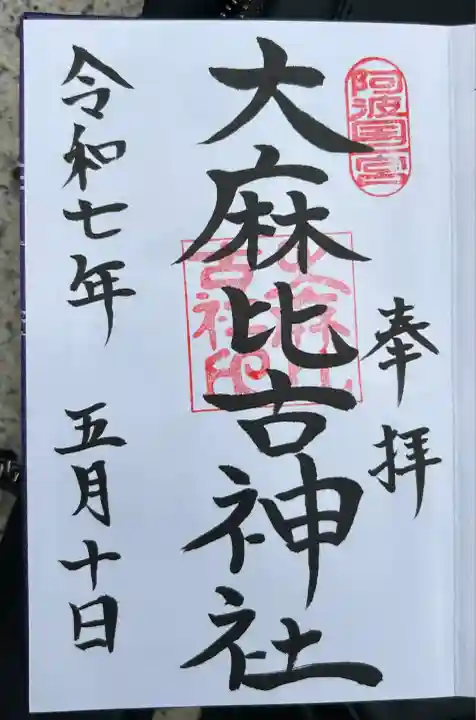 阿波国一宮
奉拝
大麻比古神社
令和七年 五月十日